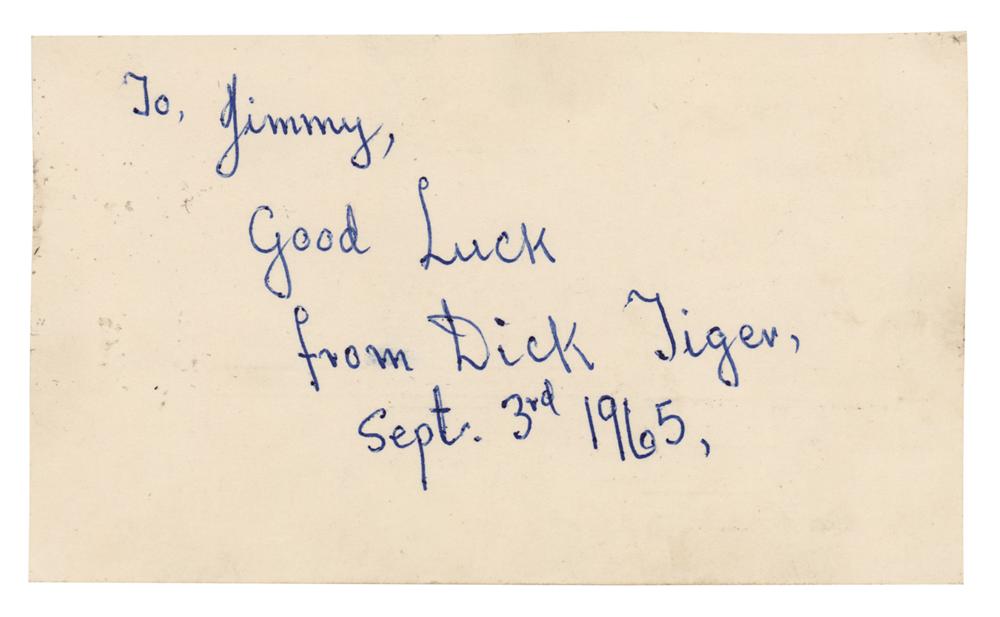 To, Jimmy,
Good Luck
from Dick Tiger,
Sept. 3rd 1965,